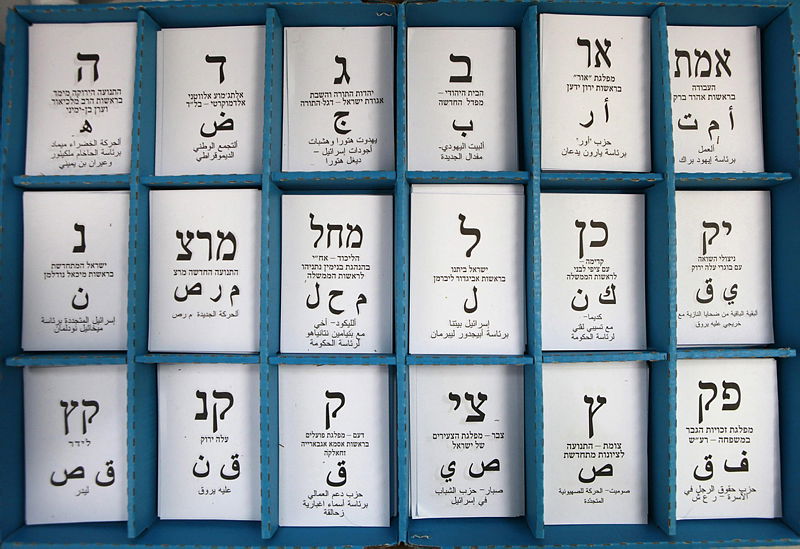 אמת
העבודה
בראשות אהוד ברק
أ م ت
العمل
برئاسة إيهود براك
אר
מפלגת "אור"
בראשות ירון ידען
أ ر
حزب "أور"
برئاسة يارون يدعان
ב
הבית היהודי –
מפדל החדשה
ب
البيت اليهودي-
مفدال الجديدة
ג
יהדות התורה והשבת
אגודת ישראל – דגל התורה
ج
يهدوت هتورا وهشبات
أجودات إسرائيل –
ديغل هتورا
ד
אלתג'מוע אלווטני
אלדמוקרטי – בל"ד
ض
التجمع الوطني
الديموقراطي
ה
התנועה הירוקה מימד
בראשות הרב מלכיאור
וערן בן-ימיני
ه
الحركة الخضراء ميماد
برئاسة الحاخام ملكيئور
وعيران بن يميني
יק
ניצולי השואה
עם בוגרי עלה ירוק
ي ق
البقية الباقية من ضحايا النازية مع
خريجي عليه يروق
כן
קדימה –
עם ציפי לבני
לראשות הממשלה
ك ن
كديما-
مع تسيبي لفني
لرئاسة الحكومة
ל
ישראל ביתנו
בראשות אביגדור ליברמן
ل
إسرائيل بيتنا
برئاسة أبيجدور ليبرمان
מחל
הליכוד – אח"י
בהנהגת בנימין נתניהו
לראשות הממשלה
م ح ل
الليكود- أخي
مع بنيامين نتانياهو
لرئاسة الحكومة
מרצ
התנועה החדשה מרצ
م ر ص
الحركة الجديدة م رص
נ
ישראל המתחדשת
בראשות מיכאל נודלמן
ن
إسرائيل المتجددة برئاسة
ميخائيل نودلمان
פק
מפלגת זכויות הגבר
במשפחה – רע"ש
ف ق
حزب حقوق الرجل في
الأسرة –
ץ
צומת – התנועה
לציונות מתחדשת
ص
صوميت- الحركة للصهيونية
المتجددة
צי
צבר – מפלגת הצעירים
של ישראל
ص ي
صبار- حزب الشباب
في إسرائيل
ק
דעם – מפלגת פועלים
בראשות אסמא אגבארייה
זחאלקה
ق
حزب دعم العمالي
برئاسة أسماء اغبارية
زحالقة
קנ
עלה ירוק
ق ن
عليه يروق
קץ
לידר
ق ص
ليدر